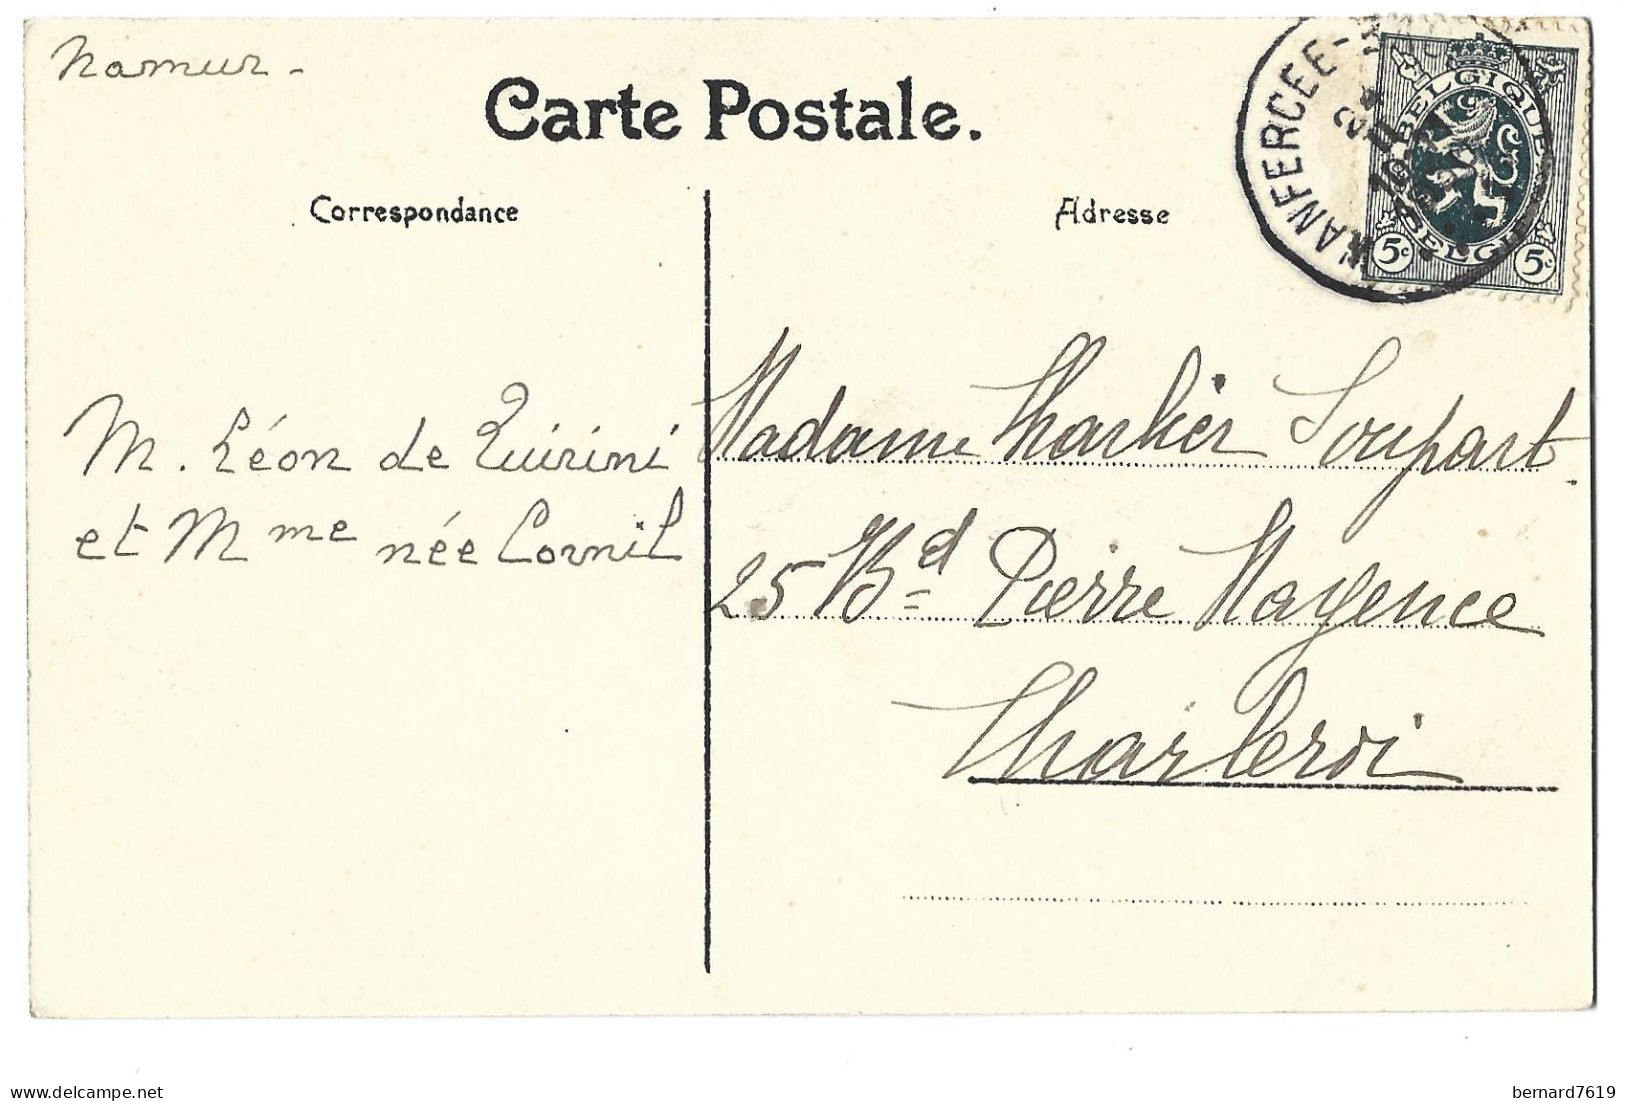 Namur -
Carte Postale.
Correspondance
Adresse
WANFERCEE-
BELGIQUE
BELGIË
5c 5c
M. Léon de Quirini
et Mme née Cornil
Madame Charlier Soupart
25 Bd Pierre Mayence
Charleroi
bernard7619